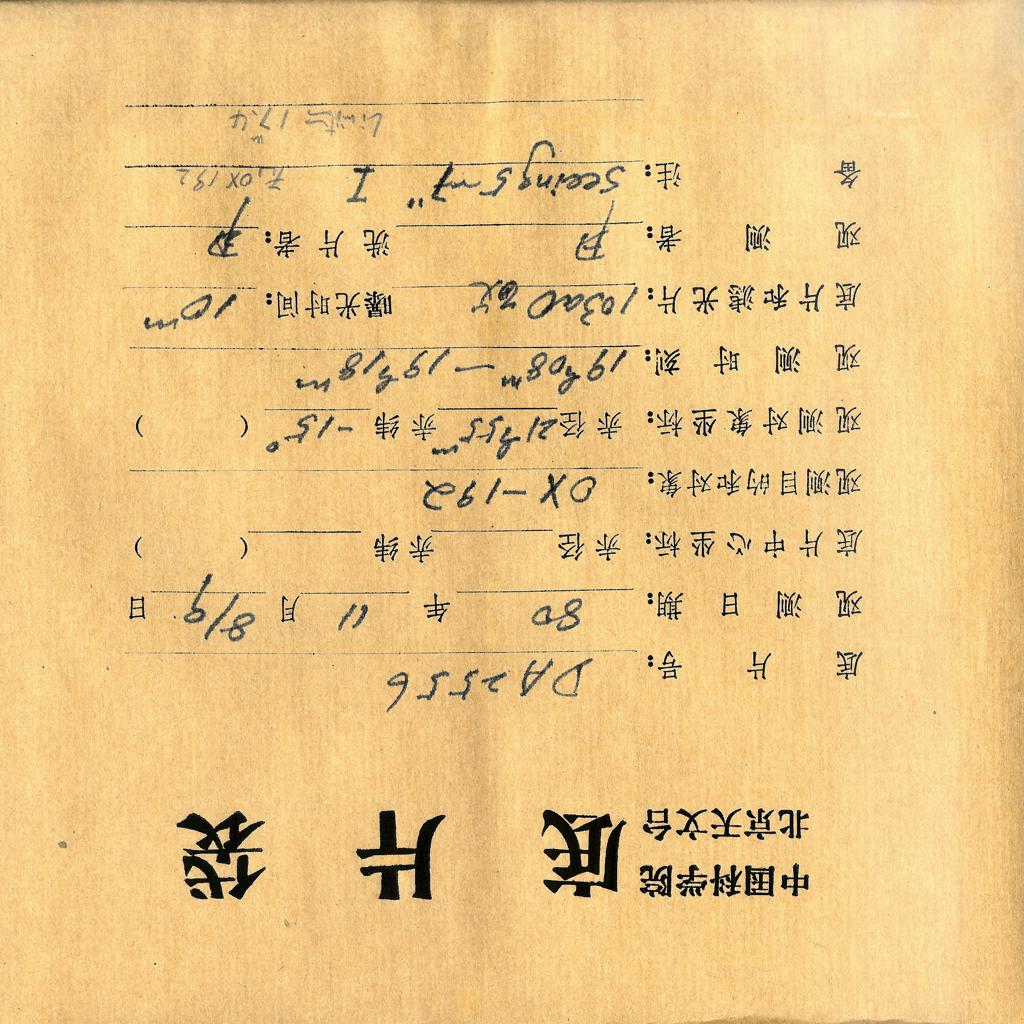 中国科学院
北京天文台 底片袋
底片号: DA2556
观测日期: 80 年 11 月 8/9 日
底片中心坐标: 赤径 赤纬 ( )
观测目的和对象: OX-192
观测对象坐标: 赤径 21h55m 赤纬 -15° ( )
观测时刻: 19h08m — 19h18m
底片和滤光片: 103aO 曝光时间: 10m
观测者: 洗片者:
备注: Seeing 5 I 无OX192
Limit= 17.4m